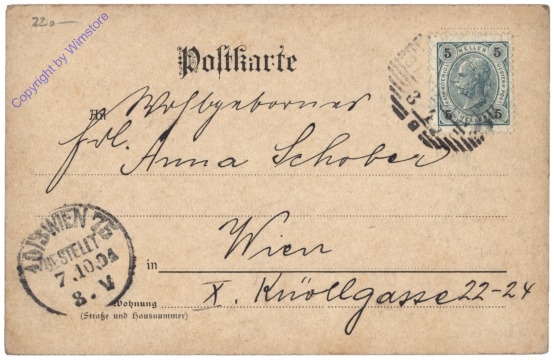 22.-
Copyright by Wimstore
Postkarte
5 HELLER 5
5 5
An Wohlgeboren
Frl. Anna Schober
10/3 WIEN 75
BESTELLT
7.10.04
8.V
in Wien
Wohnung X. Knöllgasse 22-24
(Straße und Hausnummer)